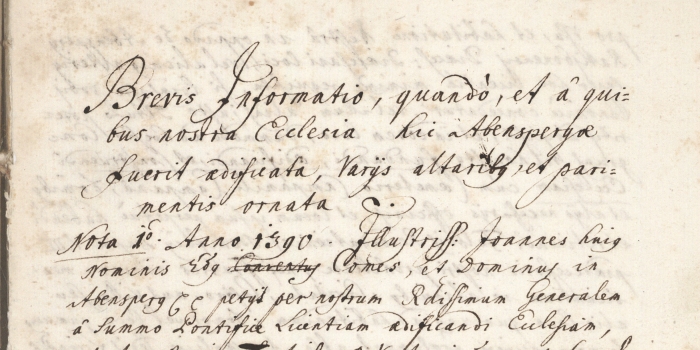 Brevis Informatio, quandò, et â qui=
bus nostra Ecclesia hic Abenspergæ
fuerit ædificata, Varijs altaribq, et pari=
mentis ornata
Nota 1º. Anno 1390. Illustriss: Joannes huig
Nominis 2dq Conventus Comes, et Dominus in
Abensperg &c petijt per nostrum Rdissimum Generalem
â Summo Pontifice Licentiam ædificandi Ecclesiam,